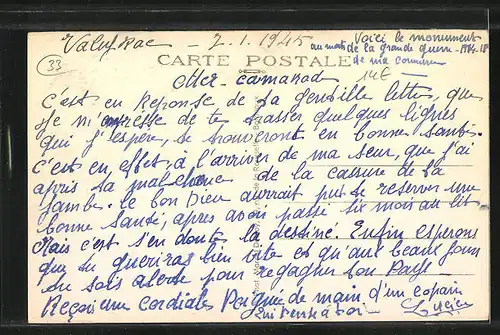 2.1.1945
Voici le monument
au morts de la grande guerre - 1914.18
de ma commune
33
CARTE POSTALE
14E
Cher camarade
C'est en Reponse de ta gentille lettre, que
Je m'empresse de te tracer quelques lignes
qui j'espère, te trouveront en bonne santé.
C'est en effet, à l'arriver de ma seur, que j'ai
apris ta malchance de la cassure de la
Jambe. le bon Dieu aurait put te reserver une
bonne santé, apres avoir passé six mois au lit
Mais c'est s'en doute la destiné. Enfin esperons
que tu gueriras bien vite et qu'aux beaux Jours
tu sois alerte pour regagner ton Pays
Reçois une cordiale Poignée de main, d'un copain
qui pense à toi
Lucien